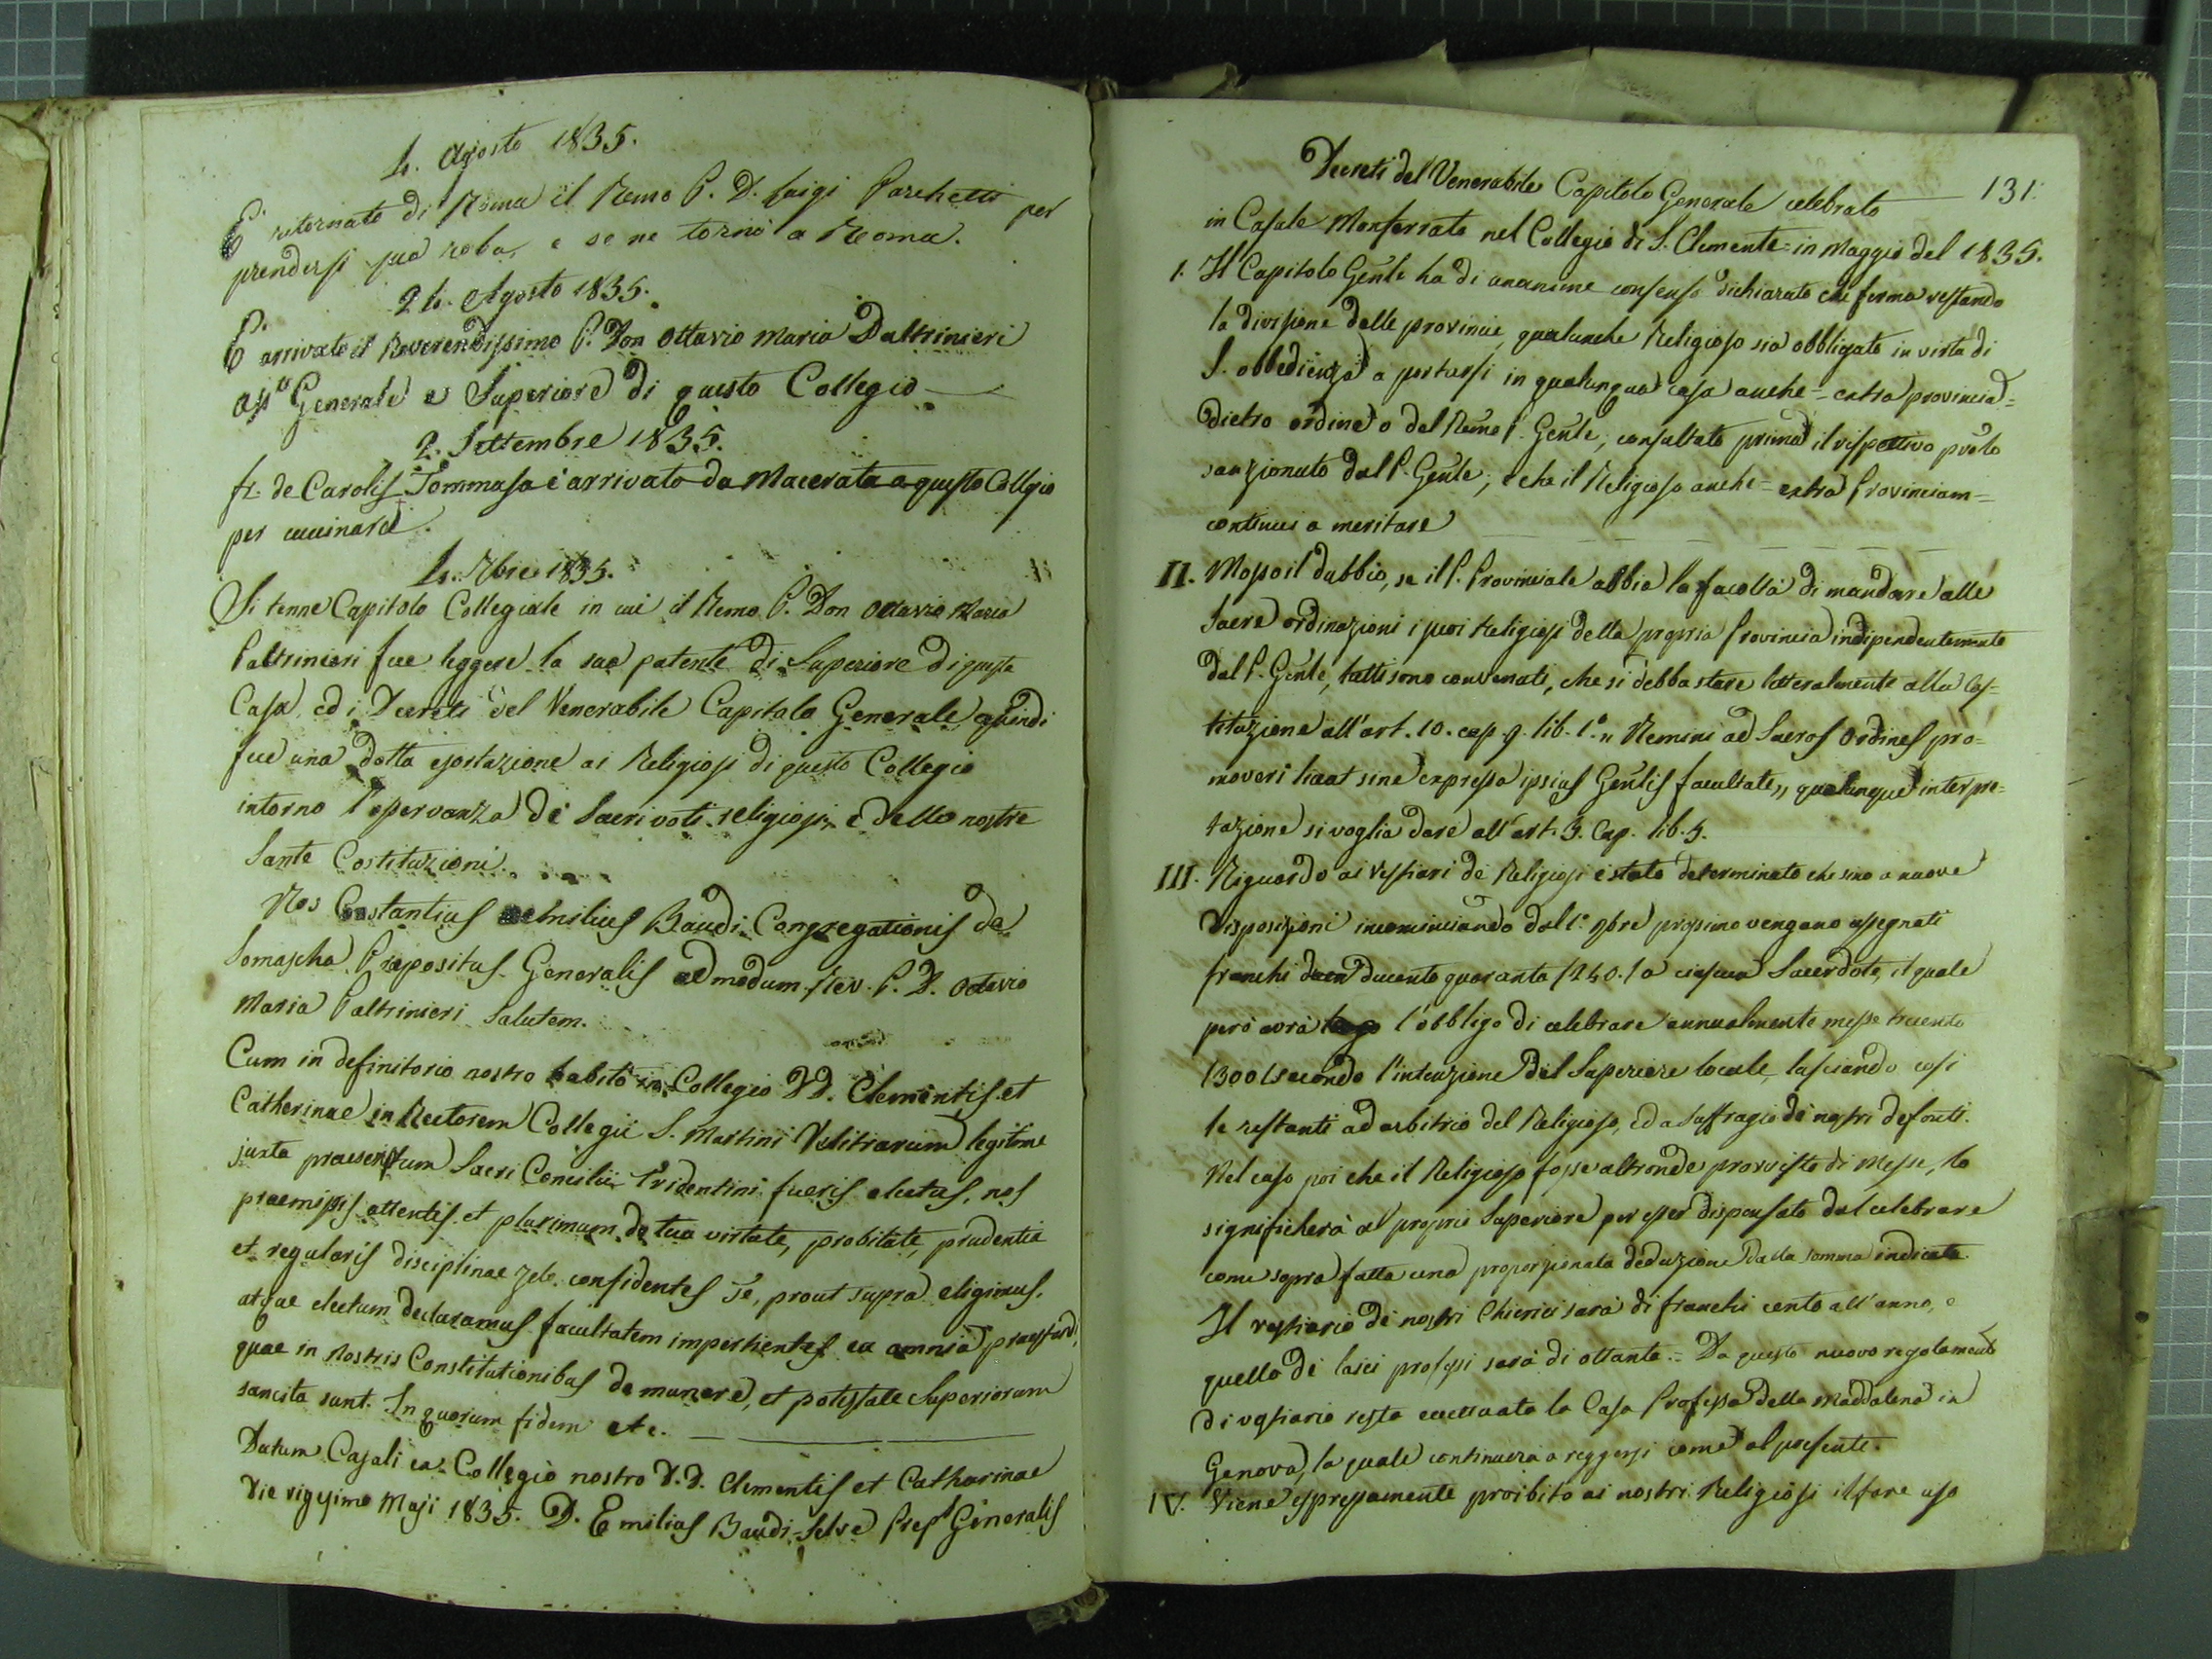 4. Agosto 1835.
E' ritornato di Roma il Remo P. D. Luigi Parchetti per
prendersi sua roba, e se ne tornò a Roma.
24. Agosto 1835.
E' arrivato il Reverendissimo P. Don Ottavio Maria Paltrinieri
Generale e Superiore di questo Collegio
2. Settembre 1835.
fr. de Carolis Tommaso è arrivato da Macerata a questo Collegio
per cucinare.
4. 7bre 1835.
Si tenne Capitolo Collegiale in cui il Remo P. Don Ottavio Maria
Paltrinieri fece leggere la sua patente di Superiore di questa
Casa, ed i Decreti del Venerabile Capitolo Generale quindi
fece una dotta esortazione ai Religiosi di questo Collegio
intorno l'osservanza de' Sacri voti religiosi, e delle nostre
Sante Costituzioni.
Nos Constantius Aemilius Baudi Congregationis de
Somascha Prepositus Generalis admodum Rev. P. D. Octavio
Maria Paltrinieri Salutem.
Cum in definitorio nostro habito in Collegio DD. Clementis et
Catherinae in Rectorem Collegii S. Martini Velitrarum legitime
juxta praescriptum Sacri Concilii Tridentini fueris electus, nos
praemissis attentis et plurimum de tua virtute, probitate, prudentia
et regularis disciplinae zelo confidentes Te, prout supra eligimus,
atque electum declaramus facultatem impertientes ea omnia praestandi,
quae in nostris Constitutionibus de munere, et potestate Superiorum
sancita sunt. In quorum fidem etc.
Datum Casali ex Collegio nostro D.D. Clementis et Catharinae
Die vigesimo Maji 1835. D. Emilius Baudi-Selve Prep. Generalis
131.
Decreti del Venerabile Capitolo Generale celebrato
in Casale Monferrato nel Collegio di S. Clemente in Maggio del 1835.
1. Il Capitolo Gen̄le ha di unanime consenso dichiarato che ferma restando
la divisione delle provincie, qualunche Religioso sia obbligato in virtù di
S. obbedienza a portarsi in qualunque casa anche = extra provinciā =
dietro ordine o del Rem̄o P. Gen̄le, consultato prima il rispettivo
sanzionato dal P. Gen̄le; e che il Religioso anche = extra Provinciam =
continui a meritare
II. Mosso il dubbio, se il P. Provinciale abbia la facoltà di mandare alle
Sacre ordinazioni i suoi Religiosi della propria Provincia indipendentemente
dal P. Gen̄le, tutti sono convenuti, che si debba stare letteralmente alla Cos-
tituzione all'art. 10. cap. 9. lib. 1.° „ Nemini ad Sacros Ordines pro=
moveri liceat sine expressa ipsius Gen̄lis facultate „ qualunque interpre=
tazione si voglia dare all'art. 3. Cap. lib. 3.
III. Riguardo ai Vestiari de' Religiosi è stato determinato che sino a nuove
Disposizioni incominciando dal 1.° 9bre prossimo vengano assegnati
franchi ducento quaranta (240.) a ciascun Sacerdote, il quale
però avrà l'obbligo di celebrare annualmente messe trecento
(300) secondo l'intenzione del Superiore locale, lasciando così
le restanti ad arbitrio del Religioso, ed a Suffragio de' nostri defonti.
Nel caso poi che il Religioso fosse altronde provvisto di Messe, lo
significherà al proprio Superiore per esser dispensato dal celebrare
come sopra fatta una proporzionata deduzione dalla somma indicata.
Il vestiario de' nostri Chierici sarà di franchi cento all'anno, e
quello de' laici professi sarà di ottanta = Da questo nuovo regolamento
di vestiario resta eccettuata la Casa Professa della Maddalena in
Genova, la quale continuerà a reggersi come al presente.
IV. Viene espressamente proibito ai nostri Religiosi il fare uso